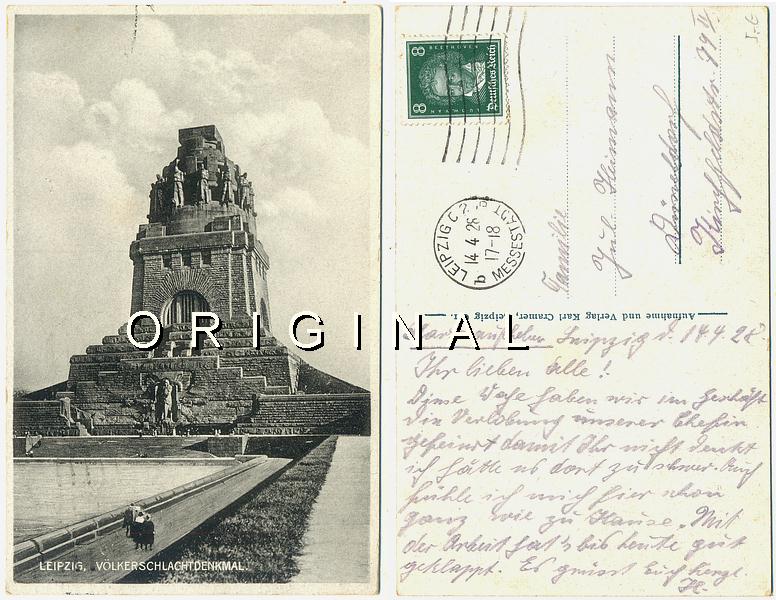 ORIGINAL
LEIPZIG, VÖLKERSCHLACHTDENKMAL.
8 BEETHOVEN 8
Deutsches Reich
LEIPZIG C 2
14 4 28
17-18
b
MESSESTADT
Familie
Jul. Heimann
Düsseldorf
Kirchfeldstr. 99 II
Aufnahme und Verlag Karl Cramer, Leipzig
Leipzig d. 14.4.28
Ihr lieben alle!
Diese Woche haben wir im Geschäft
die Verlobung unserer Chefin
gefeiert damit Ihr nicht denkt
ich hätte es dort zu schwer. Auch
fühle ich mich hier schon
ganz wie zu Hause. Mit
der Arbeit hat's bis heute gut
geklappt. Es grüsst Euch herzl.